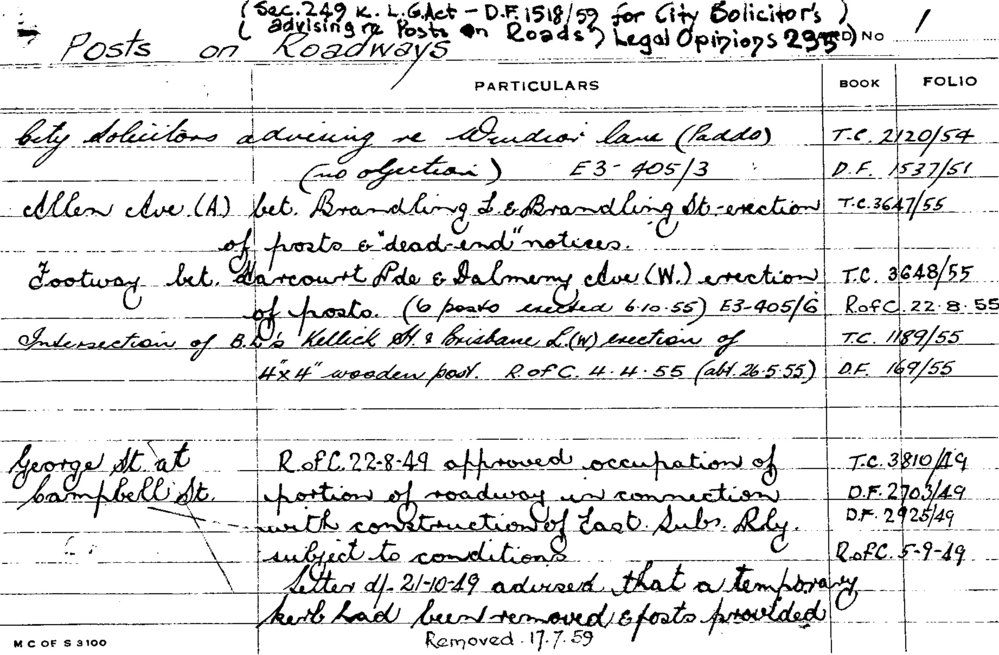 (Sec. 249 K. L.G. Act - D.F. 1518/59 for City Solicitor's)
(advising re Posts on Roads) Legal Opinions 295) D No 1
Posts on Roadways
PARTICULARS BOOK FOLIO
City Solicitors advising re Windsor lane (Paddo) T.C. 2120/54
(no objection) E3-405/3 D.F. 1537/51
Allen Ave (A.) bet. Brandling L. & Brandling St.-erection T.C. 3647/55
of posts & "dead-end" notices.
Footway bet. Harcourt Pde & Dalmeny Ave (W.) erection T.C. 3648/55
of posts. (6 posts erected 6.10.55) E3-405/6 R.of C. 22.8.55
Intersection of B.D's Kellick St. & Brisbane L. (W) erection of T.C. 1189/55
4"x4" wooden post. R.of C. 4.4.55 (abt. 26.5.55) D.F. 169/55
George St. at R.of C. 22-8-49 approved occupation of T.C. 3810/49
Campbell St. portion of roadway in connection D.F. 2703/49
with construction of East. Subs. Rly. D.F. 2925/49
subject to conditions R.of C. 5-9-49
Letter d/. 21-10-49 advised that a temporary
kerb had been removed & posts provided
Removed. 17.7.59
M C OF S 3100